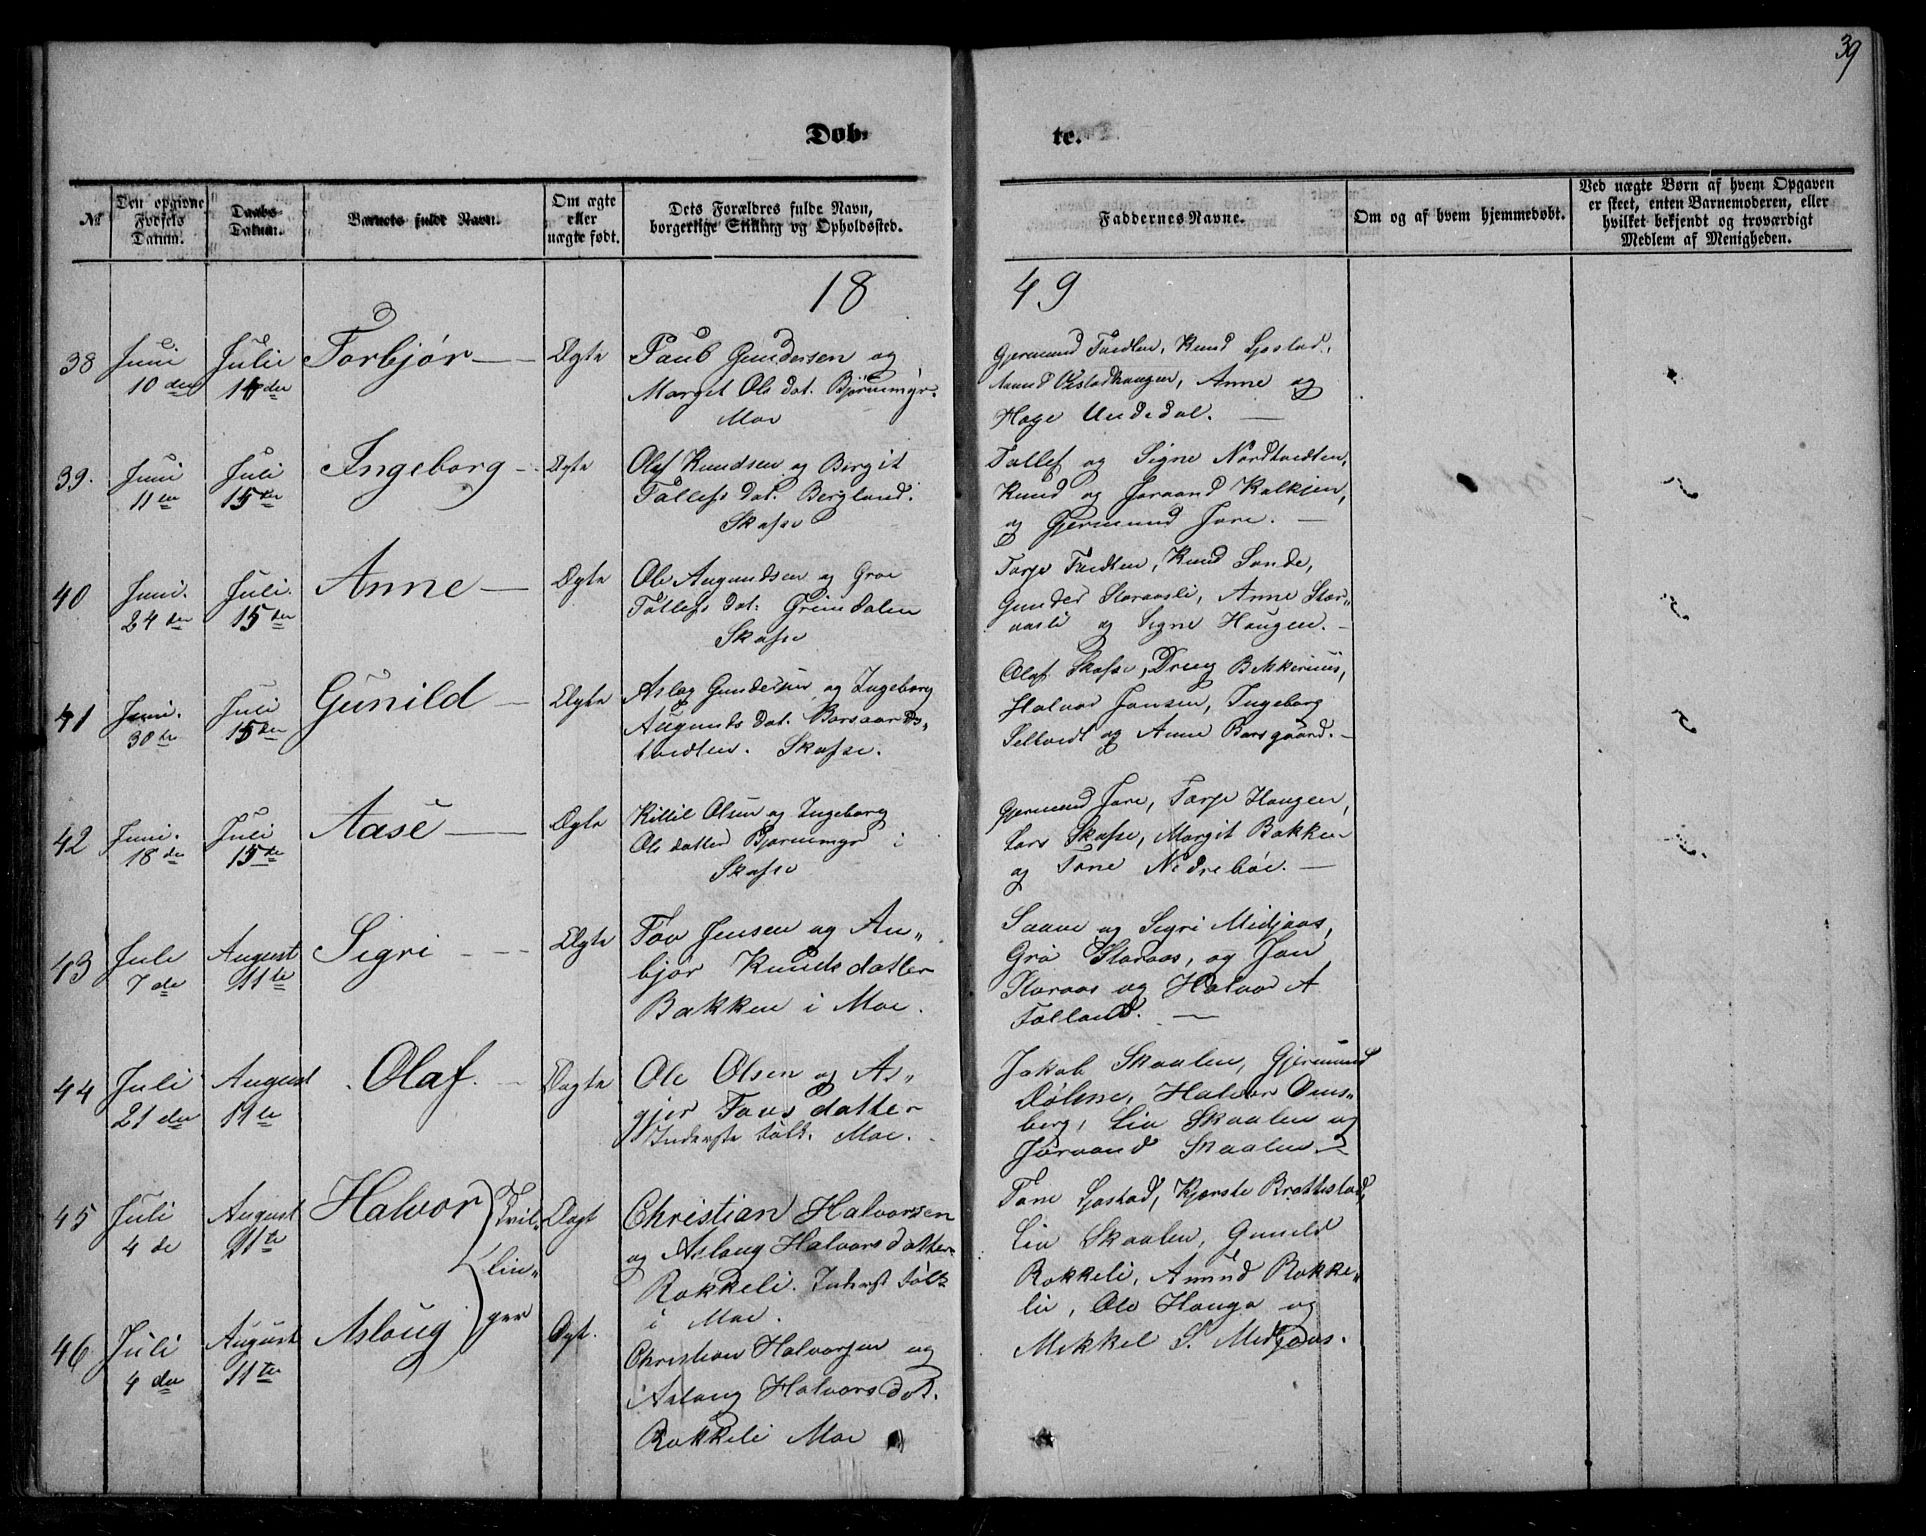 39
Døb-
te.
No
Den opgivne
Fødsels
Datum.
Daabs-
Datum.
Barnets fulde Navn.
Om ægte
eller
uægte født.
Dets Forældres fulde Navn,
borgerlige Stilling og Opholdssted.
Faddernes Navne.
Om og af hvem hjemmedøbt.
Ved uægte Børn af hvem Opgaven
er skeet, enten Barnemoderen, eller
hvilket bekjendt og troværdigt
Medlem af Menigheden.
18
49
38
Juni
10 den
Julie
den
Torbjør
Ægte
Gundersen og
Marget Ols dat. Bjørnmyr
Moe
Gjermund Tvedten, Knud
Anne og
Hage Undedal.
39.
Juni
11te
Juli
15de
Ingeborg
Ægte
Olaf Knudsen og Bergit
Tallefs dat. Bergland.
Skafse
Tallef og Signe Nordtvedten,
Knud og Joraand Kalkjen,
og Gjermund Jore.
40
Juni.
24 de
Juli.
15de
Anne
Ægte
Ole Augundsen og Groe
Tallefs dat. Grimdalen
Skafse
Tarje Tvedten, Knud Sande,
Gunder Storaasli, Anne Stor"
aasli og Signe Haugen.
41
Juni.
30te
Juli
15de
Gunild
Ægte
Aslag Gundersen og Ingeborg
Augunds dat. Borsaards"
tvedten. Skafse.
Olaf Skafse,
Halvor Jansen, Ingeborg
Seltvedt og Anne Borsgaard.
42
Juni.
18 de
Juli
15de
Aase
Ægte
Killil Olsen og Ingeborg
Ols datter Bjørnmyr i
Skafse
Gjermund Jore, Tarje Haugen,
Lars Skafse, Margit Bakken
og Tone Nedrebøe.
43
Juli
7 de
August
11te
Sigri
Ægte
Tov Jensen og An"
bjør Knuds datter
Bakken i Moe.
Saave og Sigri Midjaas,
Gro Storaas, og Jon
Storaas og Halvor A
Folland.
44
Juli
21 den
August
11te
Olaf.
Ægte
Ole Olsen og As"
gjer Tovs datter
Inderste folk. Moe.
Jakob Skaalen, Gjermund
Dølene, Halvor Ons"
berg, Liv Skaalen og
Joraand Skaalen
45
Juli
4 de
August
11te
Halvor
Tvil"
Ægt
Christian Halvorsen
og Aslaug Halvors datter
Rokkeli. Inderst folk
i Moe.
Tone Kjerste Brottestad,
Liv Skaalen, Gunild
Rokkeli, Amund Rokke"
li, Ole Hauga og
Mikkel S. Midjaas.
lin"
46
Juli
4 de
August
11te
Aslaug
ger
Ægt.
Christian Halvorsen og
Aslaug Halvors dat.
Rokkeli Moe